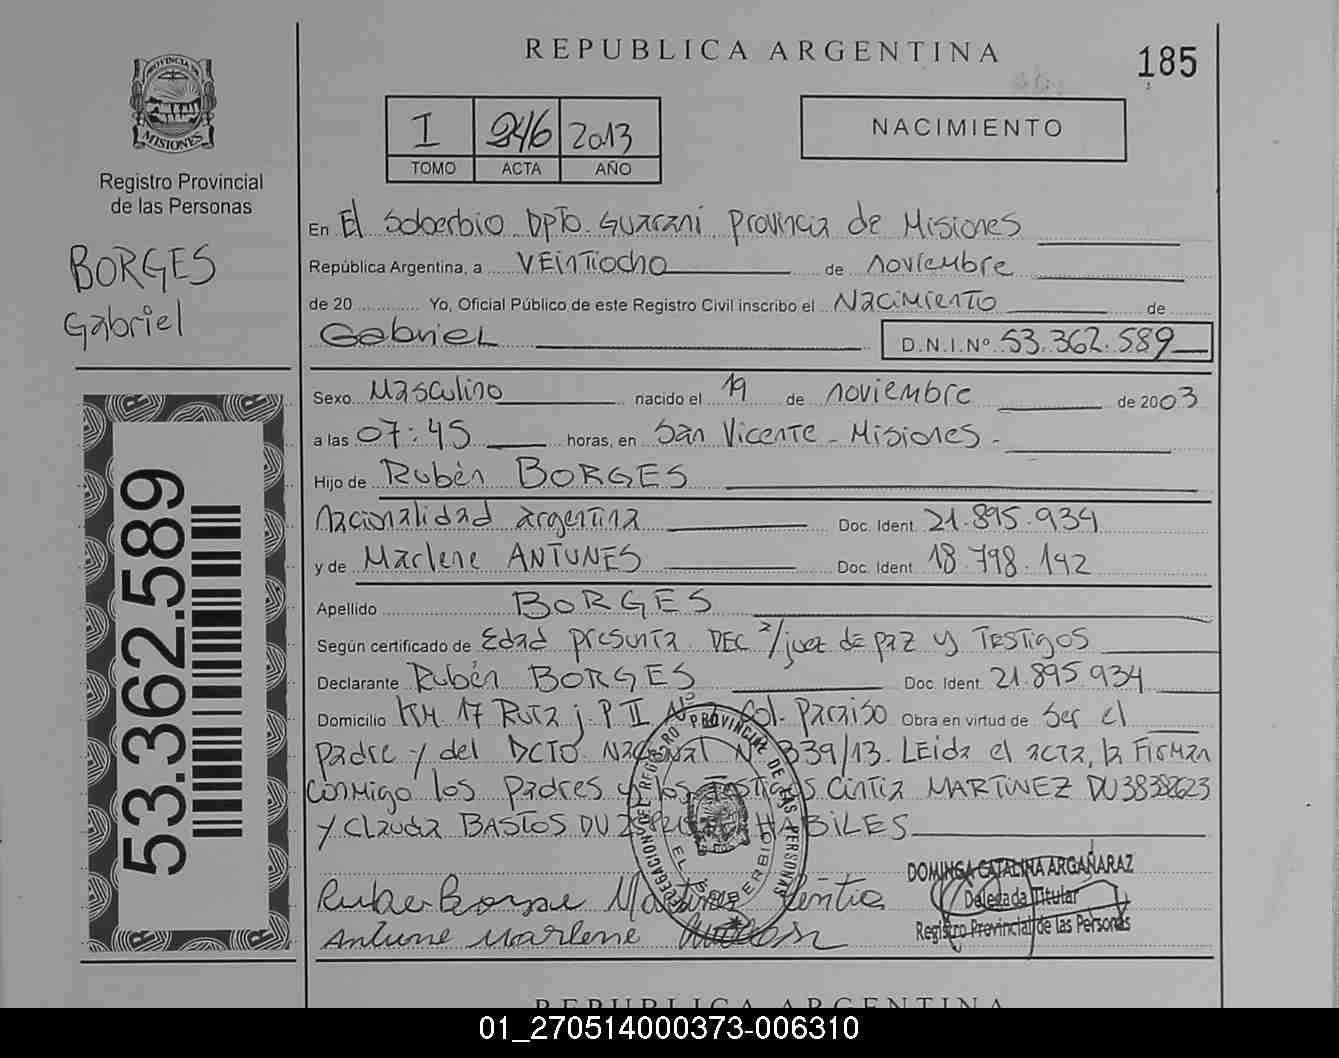 REPUBLICA ARGENTINA
185
PROVINCIA DE
MISIONES
Registro Provincial
de las Personas
BORGES
Gabriel
53.362.589
I 946 2013
TOMO ACTA AÑO
NACIMIENTO
En El Soberbio Dpto. Guaraní Provincia de Misiones
República Argentina, a VEintiocho de noviembre
de 20 Yo, Oficial Público de este Registro Civil inscribo el Nacimiento de
Gabriel D.N.I.Nº 53.362.589
Sexo Masculino nacido el 19 de noviembre de 2003
a las 07:45 horas, en San Vicente - Misiones -
Hijo de Rubén BORGES
Nacionalidad argentina Doc. Ident. 21.895.934
y de Marlene ANTUNES Doc. Ident. 18.798.142
Apellido BORGES
Según certificado de Edad presunta. DEC /juez de paz y Testigos
Declarante Rubén BORGES Doc. Ident. 21.895.934
Domicilio KM 17 Ruta j. P. II Col. Paraiso Obra en virtud de Ser el
padre y del DCTO. Nacional N 339/13. LEida el acta, la Firman
conmigo los Padres y los Testigos Cintia MARTINEZ DU
y Claudia BASTOS DU HABILES
DELEGACION DEL REGISTRO PROVINCIAL DE LAS PERSONAS
EL SOBERBIO
DOMINGA CATALINA ARGAÑARAZ
Delegada Titular
Registro Provincial de las Personas
Antune Marlene
REPUBLICA ARGENTINA
01_270514000373-006310